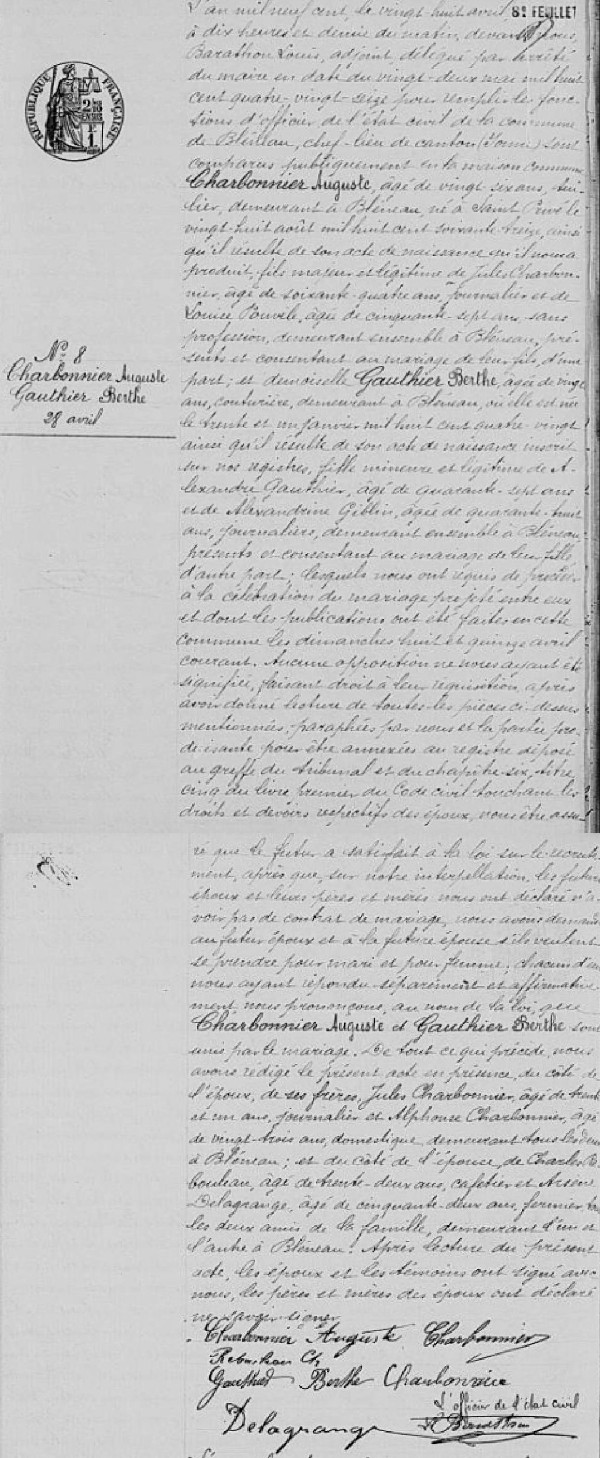 8e FEUILLET
L'an mil neuf cent, le vingt huit avril
à dix heures et demie du matin, devant nous,
Barathon Louis, adjoint délégué par arrêté
du maire en date du vingt-deux mai mil huit
cent quatre-vingt-seize pour remplir les fonc-
tions d'officier de l'état civil de la commune
de Bléneau, chef-lieu de canton (Yonne) sont
comparus publiquement en la maison commune
RÉPUBLIQUE FRANÇAISE
Charbonnier Auguste, âgé de vingt six ans, tui-
lier, demeurant à Bléneau né à Saint Privé le
vingt-huit août mil huit cent soixante-treize, ainsi
qu'il résulte de son acte de naissance qu'il nous a
produit, fils majeur et légitime de Jules Charbon-
nier, âgé de soixante-quatre ans, journalier et de
Louise, âgée de cinquante-sept ans, sans
profession, demeurant ensemble à Bléneau, pré-
sents et consentant au mariage de leur fils, d'une
part; et demoiselle Gauthier Berthe, âgée de vingt
ans, couturière, demeurant à Bléneau, où elle est née
le trente et un janvier mil huit cent quatre-vingt
ainsi qu'il résulte de son acte de naissance inscrit
sur nos registres, fille mineure et légitime de A-
lexandre Gauthier, âgé de quarante-sept ans
et de Alexandrine Giblin, âgée de quarante-huit
ans, journaliers, demeurant ensemble à Bléneau
présents et consentant au mariage de leur fille
d'autre part; lesquels nous ont requis de procéder
à la célébration du mariage projeté entre eux
et dont les publications ont été faites en cette
commune les dimanches huit et quinze avril
courant. Aucune opposition ne nous ayant été
signifiée, faisant droit à leur réquisition, après
avoir donné lecture de toutes les pièces ci-dessus
mentionnées, paraphées par nous et la partie pro-
duisante pour être annexées au registre déposé
au greffe du tribunal et du chapitre six, titre
cinq du livre premier du Code civil touchant les
droits et devoirs respectifs des époux, nous être assu-
No 8
Charbonnier Auguste
Gauthier Berthe
28 avril
ré que le futur a satisfait à la loi sur le recrute-
ment, après que, sur notre interpellation, les futurs
époux et leurs pères et mères nous ont déclaré n'a-
voir pas de contrat de mariage, nous avons demandé
au futur époux et à la future épouse s'ils veulent
se prendre pour mari et pour femme; chacun d'eux
nous ayant répondu séparément et affirmative-
ment nous prononçons, au nom de la loi, que
Charbonnier Auguste et Gauthier Berthe sont
unis par le mariage. De tout ce qui précède, nous
avons rédigé le présent acte en présence, du côté de
l'époux, de ses frères, Jules Charbonnier, âgé de trente
et un ans, journalier et Alphonse Charbonnier, âgé
de vingt trois ans, domestique, demeurant tous les deux
à Bléneau; et du côté de l'épouse, de Charles
âgé de trente-deux ans, cafetier et Arsène
Delagrange, âgé de cinquante-deux ans, fermier, tous
les deux amis de la famille, demeurant l'un et
l'autre à Bléneau. Après lecture du présent
acte, les époux et les témoins ont signé avec
nous, les pères et mères des époux ont déclaré
ne savoir signer
Charbonnier Auguste Charbonnier
Gauthier Berthe Charbonnier
L'officier de l'état civil
Delagrange